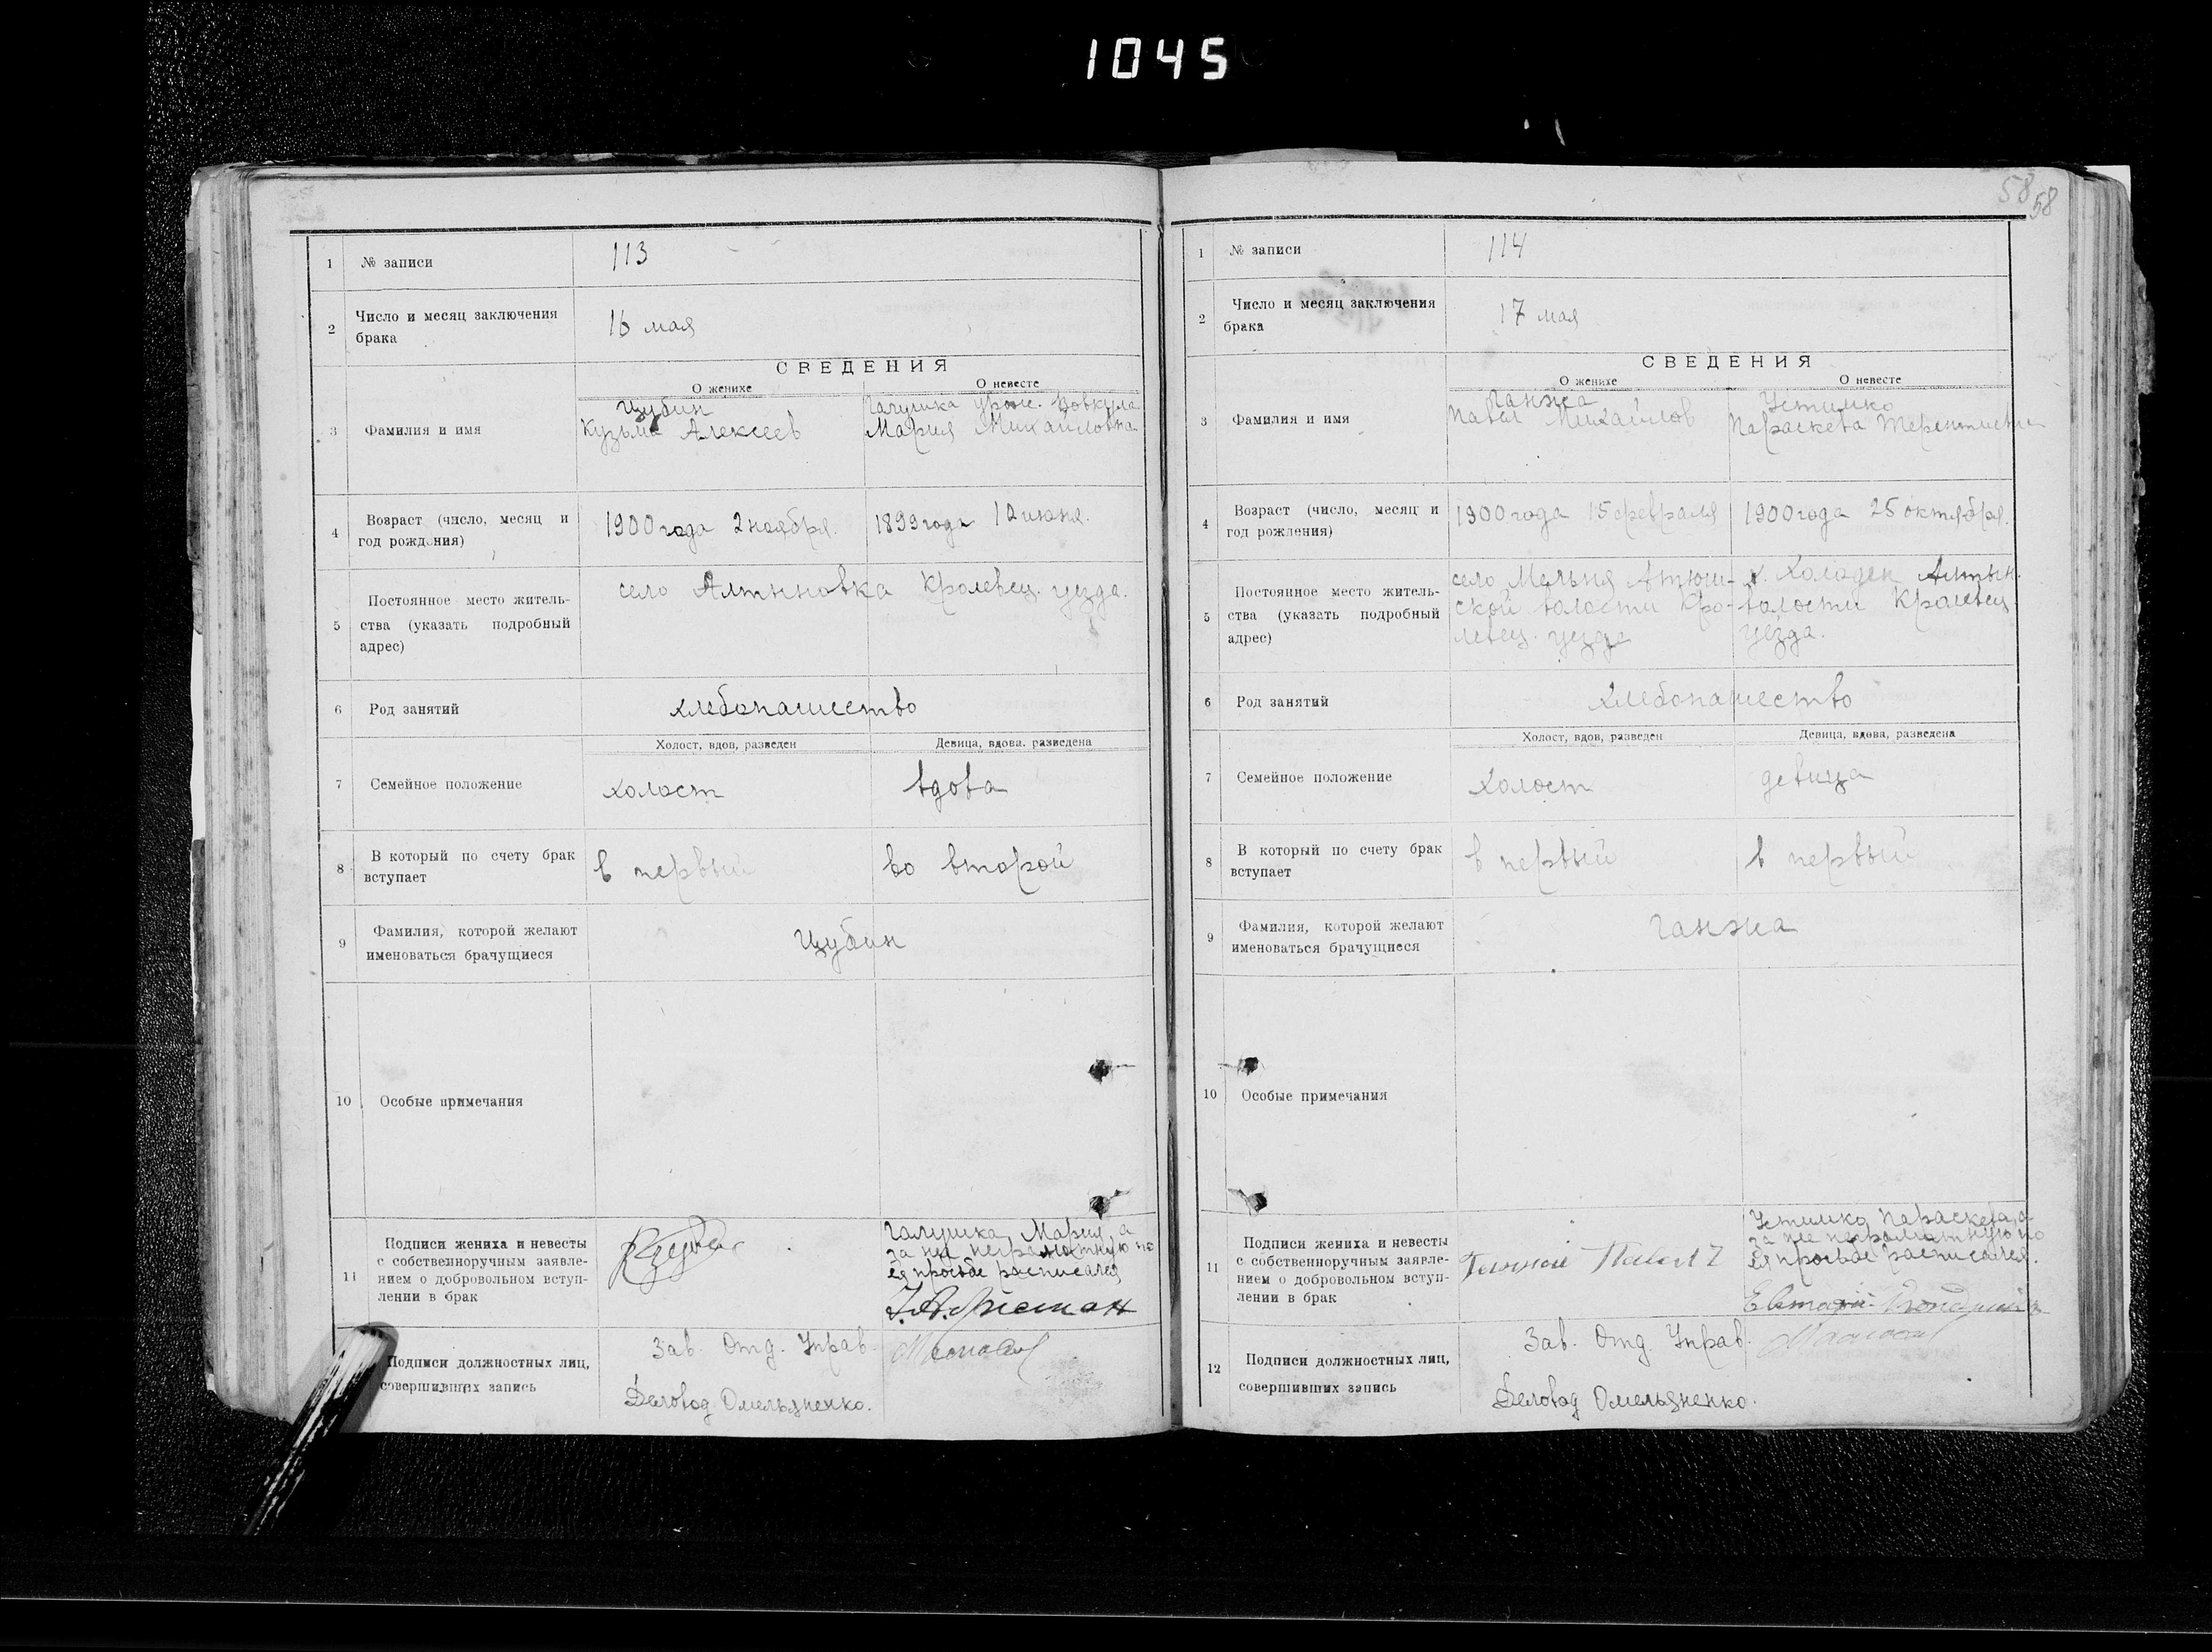 1045
1 № записи 113
2 Число и месяц заключения
брака
16 мая
СВЕДЕНИЯ
О женихе О невесте
3 Фамилия и имя
Цубин
Кузьма Алексеев
Галушка урож.
Мария Михайловна
4 Возраст (число, месяц и
год рождения)
1900 года 2 ноября. 1899 года 10 июня.
5 Постоянное место житель-
ства (указать подробный
адрес)
село Алтыновка Кролевец. уезда.
6 Род занятий хлебопашество
Холост, вдов, разведен Девица, вдова, разведена
7 Семейное положение холост вдова
8 В который по счету брак
вступает
в первый во второй
9 Фамилия, которой желают
именоваться брачущиеся
Цубин
10 Особые примечания
11 Подписи жениха и невесты
с собственноручным заявле-
нием о добровольном вступ-
лении в брак
Галушка Мария, а
за нея неграмотную по
ея просьбе расписался
Подписи должностных лиц,
совершивших запись
Зав. Отд. Управ.
Деловод Омельяненко.
58 58
1 № записи 114
2 Число и месяц заключения
брака
17 мая
СВЕДЕНИЯ
О женихе О невесте
3 Фамилия и имя
Ганжа
Павел Михайлов
Устимко
Параскева Терентиевна
4 Возраст (число, месяц и
год рождения)
1900 года 15 февраля 1900 года 25 октября.
5 Постоянное место житель-
ства (указать подробный
адрес)
село Мельня Атюш-
ской волости Кро-
левец. уезда
х. Холодек Алтын.
волости Кролевец
уезда.
6 Род занятий хлебопашество
Холост, вдов, разведен Девица, вдова, разведена
7 Семейное положение холост девица
8 В который по счету брак
вступает
в первый в первый
9 Фамилия, которой желают
именоваться брачущиеся
Ганжа
10 Особые примечания
11 Подписи жениха и невесты
с собственноручным заявле-
нием о добровольном вступ-
лении в брак
Устимко Параскева, а
за нее неграмотную по
ея просьбе расписался.
12 Подписи должностных лиц,
совершивших запись
Зав. Отд. Управ.
Деловод Омельяненко.